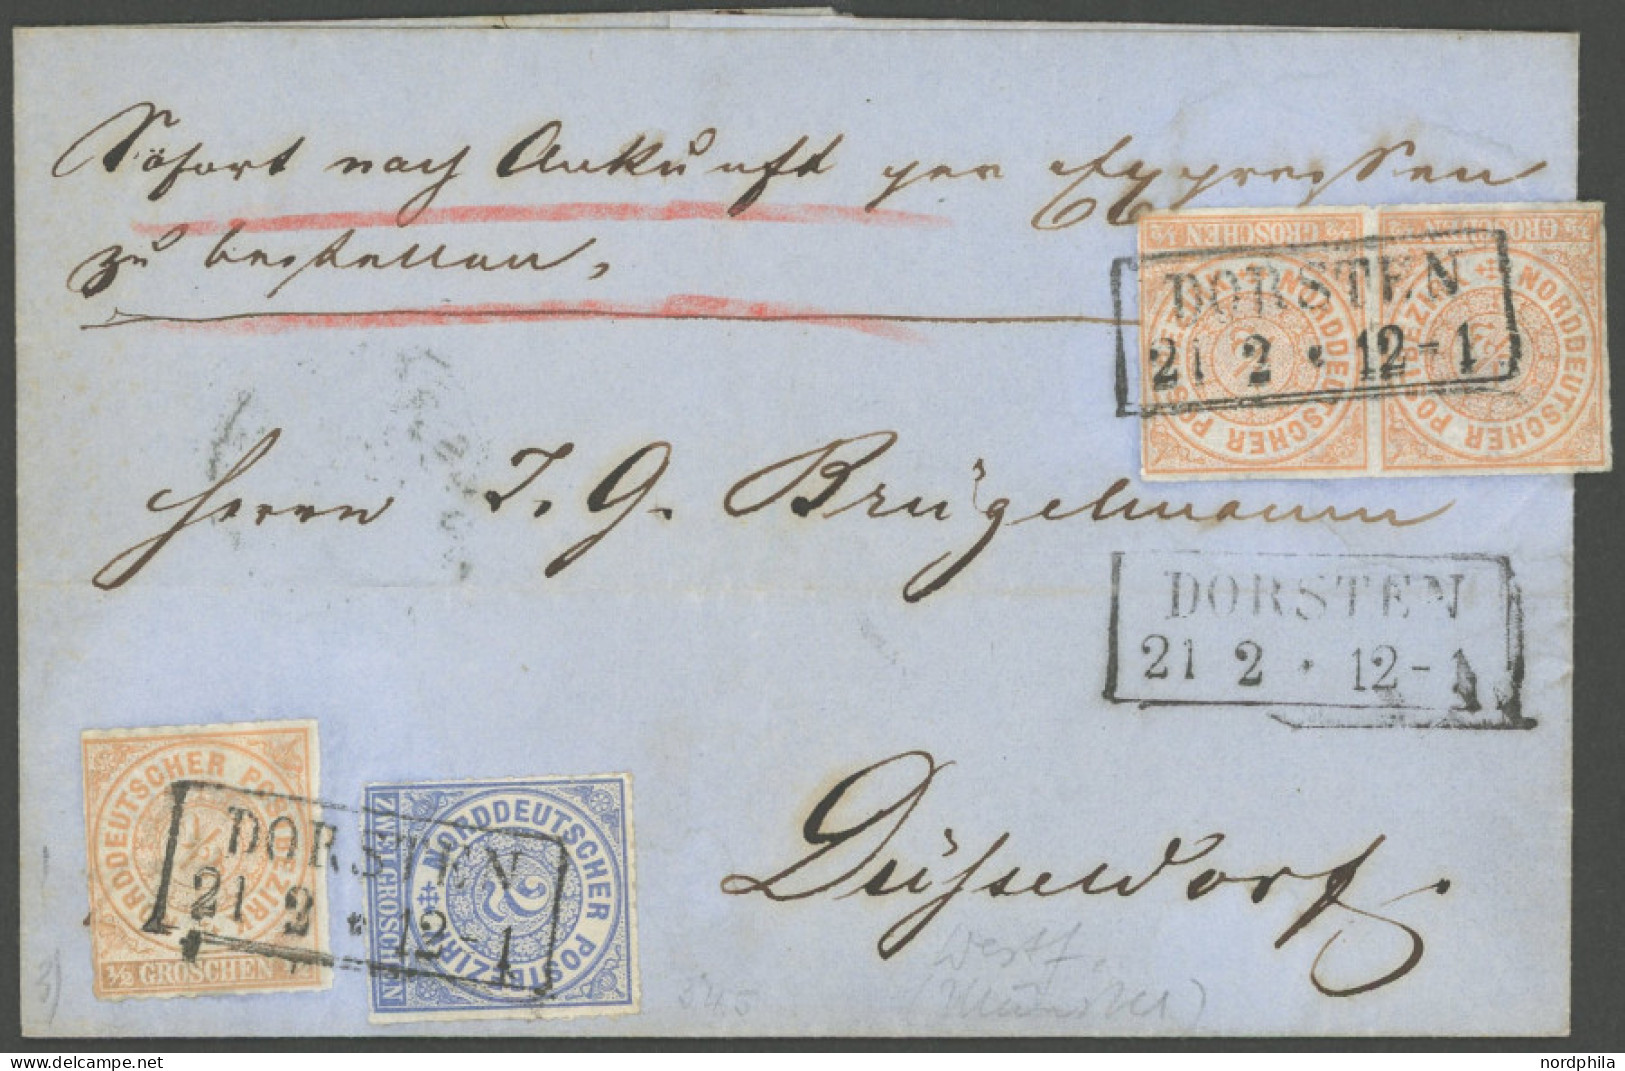 Sofort nach Ankunft per Expressen
zu bestellen,
½ GROSCHEN ½
NORDDEUTSCHER POSTBEZIRK
½ GROSCHEN ½
NORDDEUTSCHER POSTBEZIRK
DORSTEN
21 2 • 12-1
Herrn J. G. Brügelmann
DORSTEN
21 2 • 12-1
NORDDEUTSCHER POSTBEZIRK
½
½ GROSCHEN ½
ZWEI GROSCHEN
NORDDEUTSCHER POSTBEZIRK
2
DORSTEN
21 2 • 12-1
Düsseldorf.
Westf.
(Münster)
345
3)
nordphila